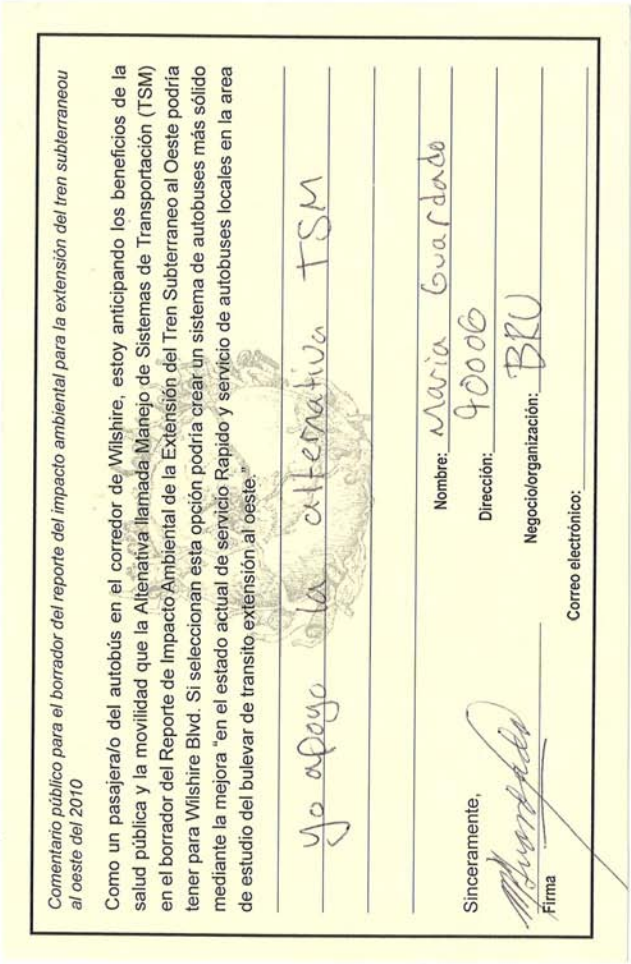 Comentario público para el borrador del reporte del impacto ambiental para la extensión del tren subterraneou
al oeste del 2010
Como un pasajera/o del autobús en el corredor de Wilshire, estoy anticipando los beneficios de la
salud pública y la movilidad que la Altenativa llamada Manejo de Sistemas de Transportación (TSM)
en el borrador del Reporte de Impacto Ambiental de la Extensión del Tren Subterraneo al Oeste podría
tener para Wilshire Blvd. Si seleccionan esta opción podría crear un sistema de autobuses más sólido
mediante la mejora "en el estado actual de servicio Rapido y servicio de autobuses locales en la area
de estudio del bulevar de transito extensión al oeste."
yo apoyo la alternativa TSM
Sinceramente,
MGuardado
Firma
Nombre: Maria Guardado
Dirección: 90006
Negocio/organización: BRU
Correo electrónico: